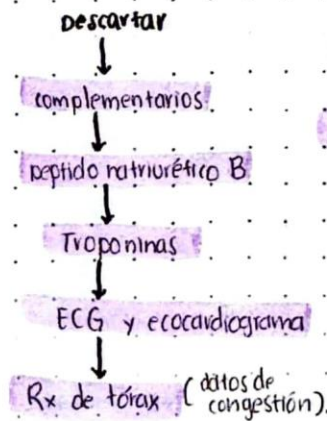 Descartar
complementarios
peptido natriurético B
Troponinas
ECG y ecocardiograma
Rx de tórax (datos de
congestión).